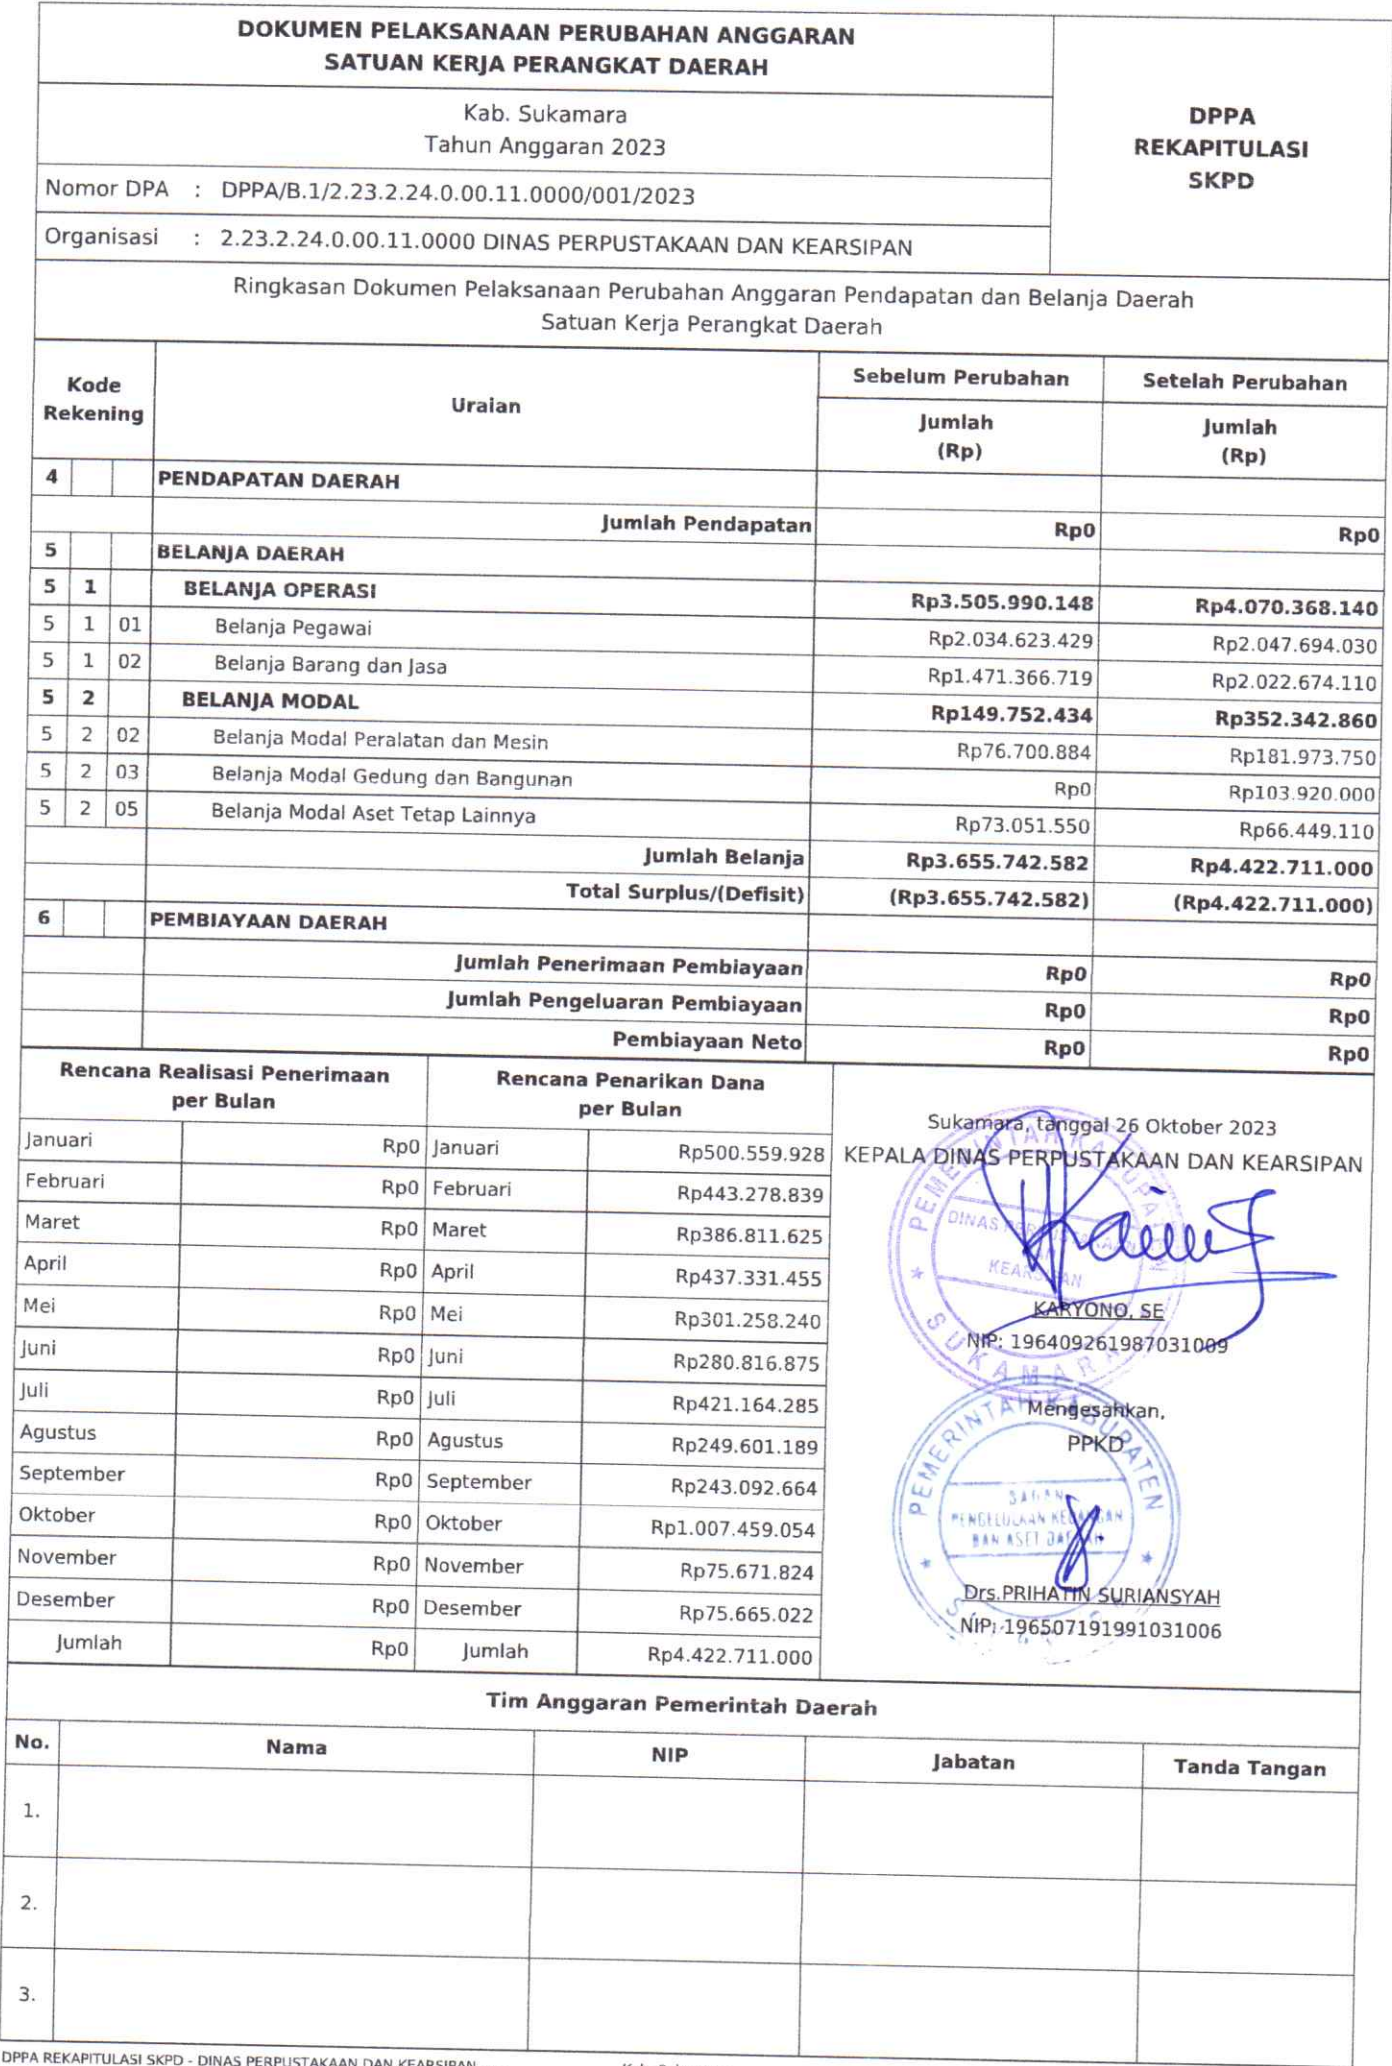 DOKUMEN PELAKSANAAN PERUBAHAN ANGGARAN
SATUAN KERJA PERANGKAT DAERAH
DPPA
REKAPITULASI
SKPD
Kab. Sukamara
Tahun Anggaran 2023
Nomor DPA : DPPA/B.1/2.23.2.24.0.00.11.0000/001/2023
Organisasi : 2.23.2.24.0.00.11.0000 DINAS PERPUSTAKAAN DAN KEARSIPAN
Ringkasan Dokumen Pelaksanaan Perubahan Anggaran Pendapatan dan Belanja Daerah
Satuan Kerja Perangkat Daerah
Kode Rekening Uraian Sebelum Perubahan Setelah Perubahan
Jumlah (Rp) Jumlah (Rp)
4 PENDAPATAN DAERAH
Jumlah Pendapatan Rp0 Rp0
5 BELANJA DAERAH
5 1 BELANJA OPERASI Rp3.505.990.148 Rp4.070.368.140
5 1 01 Belanja Pegawai Rp2.034.623.429 Rp2.047.694.030
5 1 02 Belanja Barang dan Jasa Rp1.471.366.719 Rp2.022.674.110
5 2 BELANJA MODAL Rp149.752.434 Rp352.342.860
5 2 02 Belanja Modal Peralatan dan Mesin Rp76.700.884 Rp181.973.750
5 2 03 Belanja Modal Gedung dan Bangunan Rp0 Rp103.920.000
5 2 05 Belanja Modal Aset Tetap Lainnya Rp73.051.550 Rp66.449.110
Jumlah Belanja Rp3.655.742.582 Rp4.422.711.000
Total Surplus/(Defisit) (Rp3.655.742.582) (Rp4.422.711.000)
6 PEMBIAYAAN DAERAH
Jumlah Penerimaan Pembiayaan Rp0 Rp0
Jumlah Pengeluaran Pembiayaan Rp0 Rp0
Pembiayaan Neto Rp0 Rp0
Rencana Realisasi Penerimaan per Bulan Rencana Penarikan Dana per Bulan
Januari Rp0 Januari Rp500.559.928
Februari Rp0 Februari Rp443.278.839
Maret Rp0 Maret Rp386.811.625
April Rp0 April Rp437.331.455
Mei Rp0 Mei Rp301.258.240
Juni Rp0 Juni Rp280.816.875
Juli Rp0 Juli Rp421.164.285
Agustus Rp0 Agustus Rp249.601.189
September Rp0 September Rp243.092.664
Oktober Rp0 Oktober Rp1.007.459.054
November Rp0 November Rp75.671.824
Desember Rp0 Desember Rp75.665.022
Jumlah Rp0 Jumlah Rp4.422.711.000
Sukamara, tanggal 26 Oktober 2023
KEPALA DINAS PERPUSTAKAAN DAN KEARSIPAN
PEMERINTAH KABUPATEN
DINAS PERPUSTAKAAN
KEARSIPAN
SUKAMARA
KARYONO, SE
NIP: 196409261987031009
Mengesahkan,
PPKD
PEMERINTAH KABUPATEN
BADAN
PENGELOLAAN KEUANGAN
DAN ASET DAERAH
Drs.PRIHATIN SURIANSYAH
NIP: 196507191991031006
Tim Anggaran Pemerintah Daerah
No. Nama NIP Jabatan Tanda Tangan
1.
2.
3.
DPPA REKAPITULASI SKPD - DINAS PERPUSTAKAAN DAN KEARSIPAN